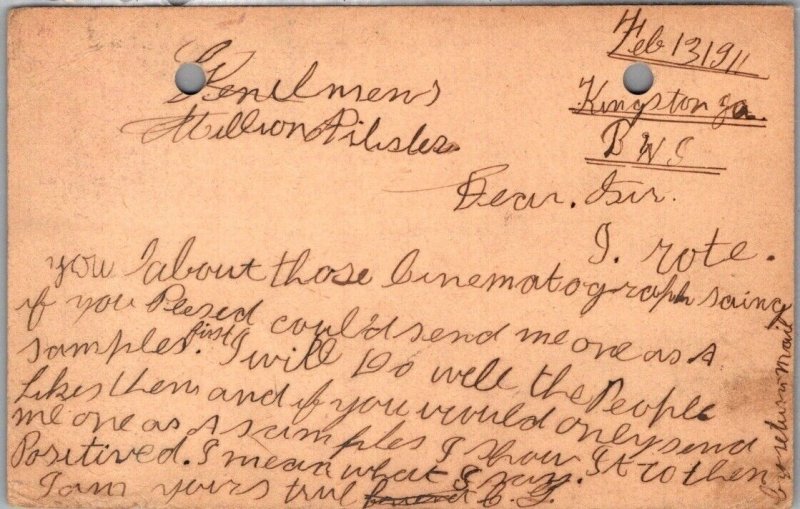 Feb 13 1911
Kingston Ja.
B W I
Gentlmens
Dear. Sir.
I. rote.
you about those Cinematograph saing
if you Plesed could send me one as A
samples. first I will Do well the People
Likes them and if you would only send
me one as A samples I show It to them
Positived. I mean what I say.
I am yours true
by return mail